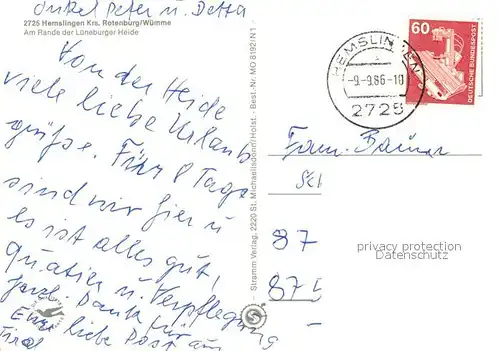 Onkel Peter u. Detta
2725 Hemslingen Krs. Rotenburg/Wümme
Am Rande der Lüneburger Heide
Von der Heide
viele liebe Urlaubs
grüße. Für 8 Tage
sind wir hier u
es ist alles gut,
Quatier u. Verpflegung
Herzl. Dank für
Eure liebe Post aus
Tirol
Stramm Verlag, 2320 St. Michaelisdonn/Holst. · Best.-Nr. MO 8192/N1
HEMSLINGEN
-9.-9.86-10
2725
60
DEUTSCHE BUNDESPOST
Fam. Bauner
Sch
87
875
privacy protection
Datenschutz